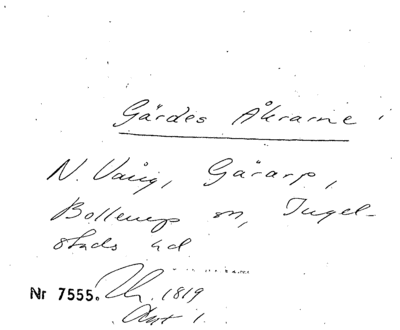 Gärdes Åkrarne i
N. Vång, Gärarp,
Bollerup sn, Ingel-
stads hd
Nr 7555. 1819